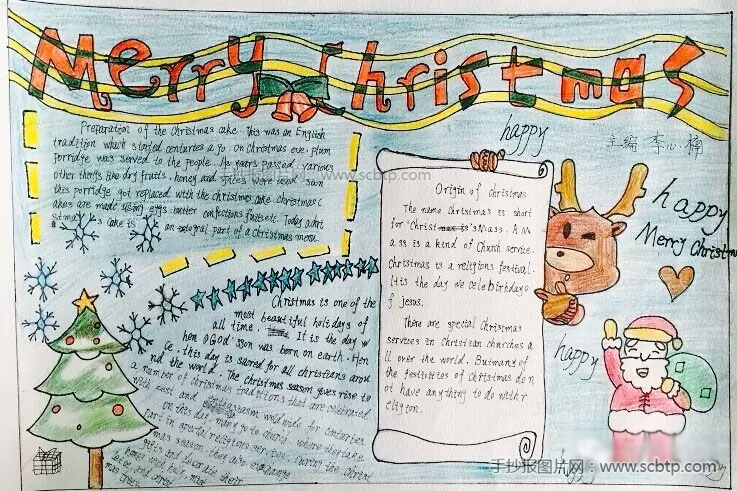 Merry Christmas
Preparation of the Christmas cake. This was an English
tradition which started centuries ago. On Christmas eve. plum
porridge was served to the people. As years passed, various
other things like dry fruits, honey and spices were used
this porridge got replaced with the christmas cake. Christmas
cakes are made
cake is an part of a Christmas menu.
happy
主编 李心楠
Origin of Christmas
The name Christmas is short
for 'Christ 's Mass'. A M
ass is a kind of Church service.
Christmas is a religions festival.
It is the day we celebirthday o
f jesus.
There are special Christmas
services in Christian churches a
ll over the world. But many of
the festivities of Christmas don
ot have anything to do with r
eligion.
happy
Merry Christm
Christmas is one of the
most beautiful holidays of
all time. It is the day w
hen God' son was born on earth. Hen
ce, this day is sacred for all christians arou
nd the world. The christmas season gives rise to
a number of christmas traditions that are celebrated
with zest and enthusiasm worldwide for centuries.
On this day many go to church where they take
part in special religious services. During the christ
mas season, they are exchange
gifts and decorate their
happy
www.scbtp.com
手抄报图片网：www.scbtp.com